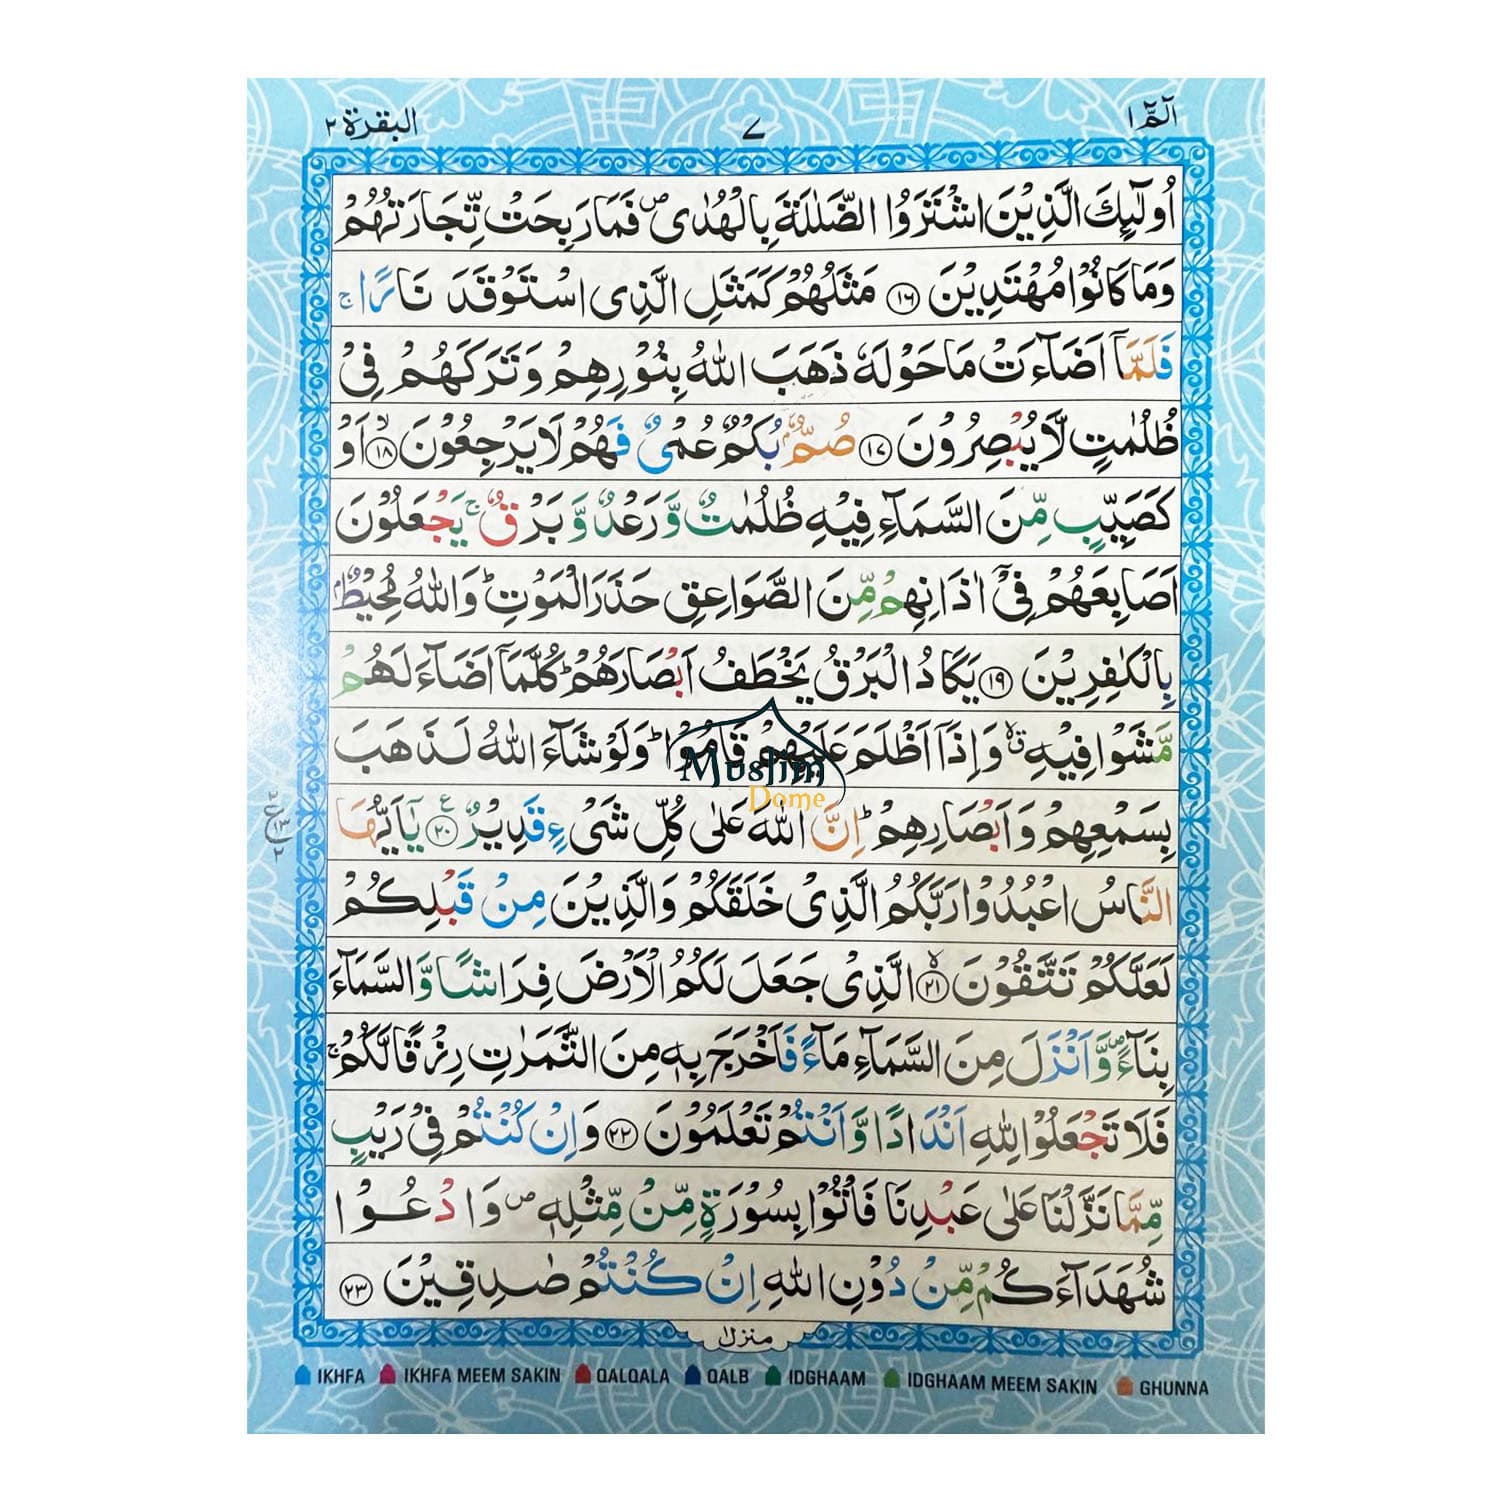 الٓمّٓ ١
٧
البقرة ٢
اُولٰٓئِكَ الَّذِيْنَ اشْتَرَوُا الضَّلٰلَةَ بِالْهُدٰى ۪ فَمَا رَبِحَتْ تِّجَارَتُهُمْ
وَمَا كَانُوْا مُهْتَدِيْنَ ﴿١٦﴾ مَثَلُهُمْ كَمَثَلِ الَّذِى اسْتَوْقَدَ نَارًا ۚ
فَلَمَّآ اَضَآءَتْ مَا حَوْلَهٗ ذَهَبَ اللّٰهُ بِنُوْرِهِمْ وَتَرَكَهُمْ فِىْ
ظُلُمٰتٍ لَّا يُبْصِرُوْنَ ﴿١٧﴾ صُمٌّۢ بُكْمٌ عُمْىٌ فَهُمْ لَا يَرْجِعُوْنَ ۙ﴿١٨﴾ اَوْ
كَصَيِّبٍ مِّنَ السَّمَآءِ فِيْهِ ظُلُمٰتٌ وَّرَعْدٌ وَّبَرْقٌ ۚ يَجْعَلُوْنَ
اَصَابِعَهُمْ فِىْٓ اٰذَانِهِمْ مِّنَ الصَّوَاعِقِ حَذَرَ الْمَوْتِ ؕ وَاللّٰهُ مُحِيْطٌۢ
بِالْكٰفِرِيْنَ ﴿١٩﴾ يَكَادُ الْبَرْقُ يَخْطَفُ اَبْصَارَهُمْ ؕ كُلَّمَآ اَضَآءَ لَهُمْ
مَّشَوْا فِيْهِ ۙۗ وَاِذَآ اَظْلَمَ عَلَيْهِمْ قَامُوْا ؕ وَلَوْ شَآءَ اللّٰهُ لَذَهَبَ
بِسَمْعِهِمْ وَاَبْصَارِهِمْ ؕ اِنَّ اللّٰهَ عَلٰى كُلِّ شَىْءٍ قَدِيْرٌ ﴿٢٠﴾ ع يٰٓاَيُّهَا
النَّاسُ اعْبُدُوْا رَبَّكُمُ الَّذِىْ خَلَقَكُمْ وَالَّذِيْنَ مِنْ قَبْلِكُمْ
لَعَلَّكُمْ تَتَّقُوْنَ ۙ﴿٢١﴾ الَّذِىْ جَعَلَ لَكُمُ الْاَرْضَ فِرَاشًا وَّالسَّمَآءَ
بِنَآءً ۪ وَّاَنْزَلَ مِنَ السَّمَآءِ مَآءً فَاَخْرَجَ بِهٖ مِنَ الثَّمَرٰتِ رِزْقًا لَّكُمْ ۚ
فَلَا تَجْعَلُوْا لِلّٰهِ اَنْدَادًا وَّاَنْتُمْ تَعْلَمُوْنَ ﴿٢٢﴾ وَاِنْ كُنْتُمْ فِىْ رَيْبٍ
مِّمَّا نَزَّلْنَا عَلٰى عَبْدِنَا فَاْتُوْا بِسُوْرَةٍ مِّنْ مِّثْلِهٖ ۪ وَادْعُوْا
شُهَدَآءَكُمْ مِّنْ دُوْنِ اللّٰهِ اِنْ كُنْتُمْ صٰدِقِيْنَ ﴿٢٣﴾
٢ ع ١٣ ٢
منزل ١
IKHFA IKHFA MEEM SAKIN QALQALA QALB IDGHAAM IDGHAAM MEEM SAKIN GHUNNA
Muslim
Dome